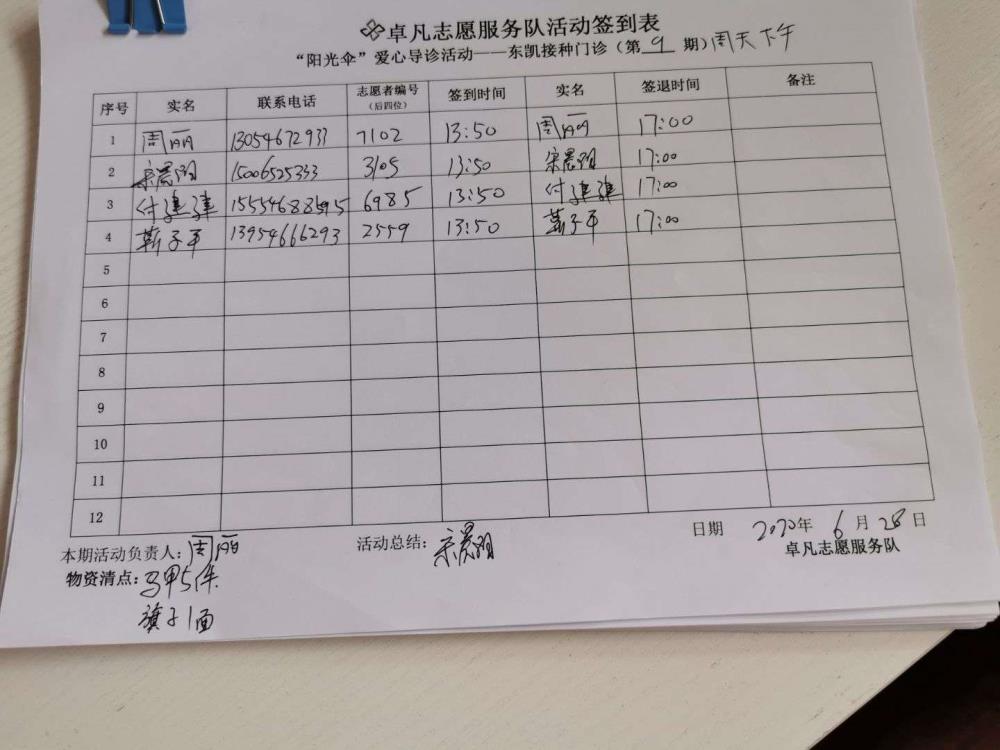 卓凡志愿服务队活动签到表
“阳光伞”爱心导诊活动——东凯接种门诊（第 9 期）周天下午
序号 实名 联系电话 志愿者编号（后四位） 签到时间 实名 签退时间 备注
1 周丽 13054672933 7102 13:50 周丽 17:00
2 宋晨阳 15006525333 3105 13:50 宋晨阳 17:00
3 付建建 6985 13:50 付建建 17:00
4 靳子平 13954666293 2559 13:50 靳子平 17:00
5
6
7
8
9
10
11
12
本期活动负责人：周丽 活动总结：宋晨阳 日期 2020年 6 月 28 日
物资清点：马甲5件 卓凡志愿服务队
旗子1面